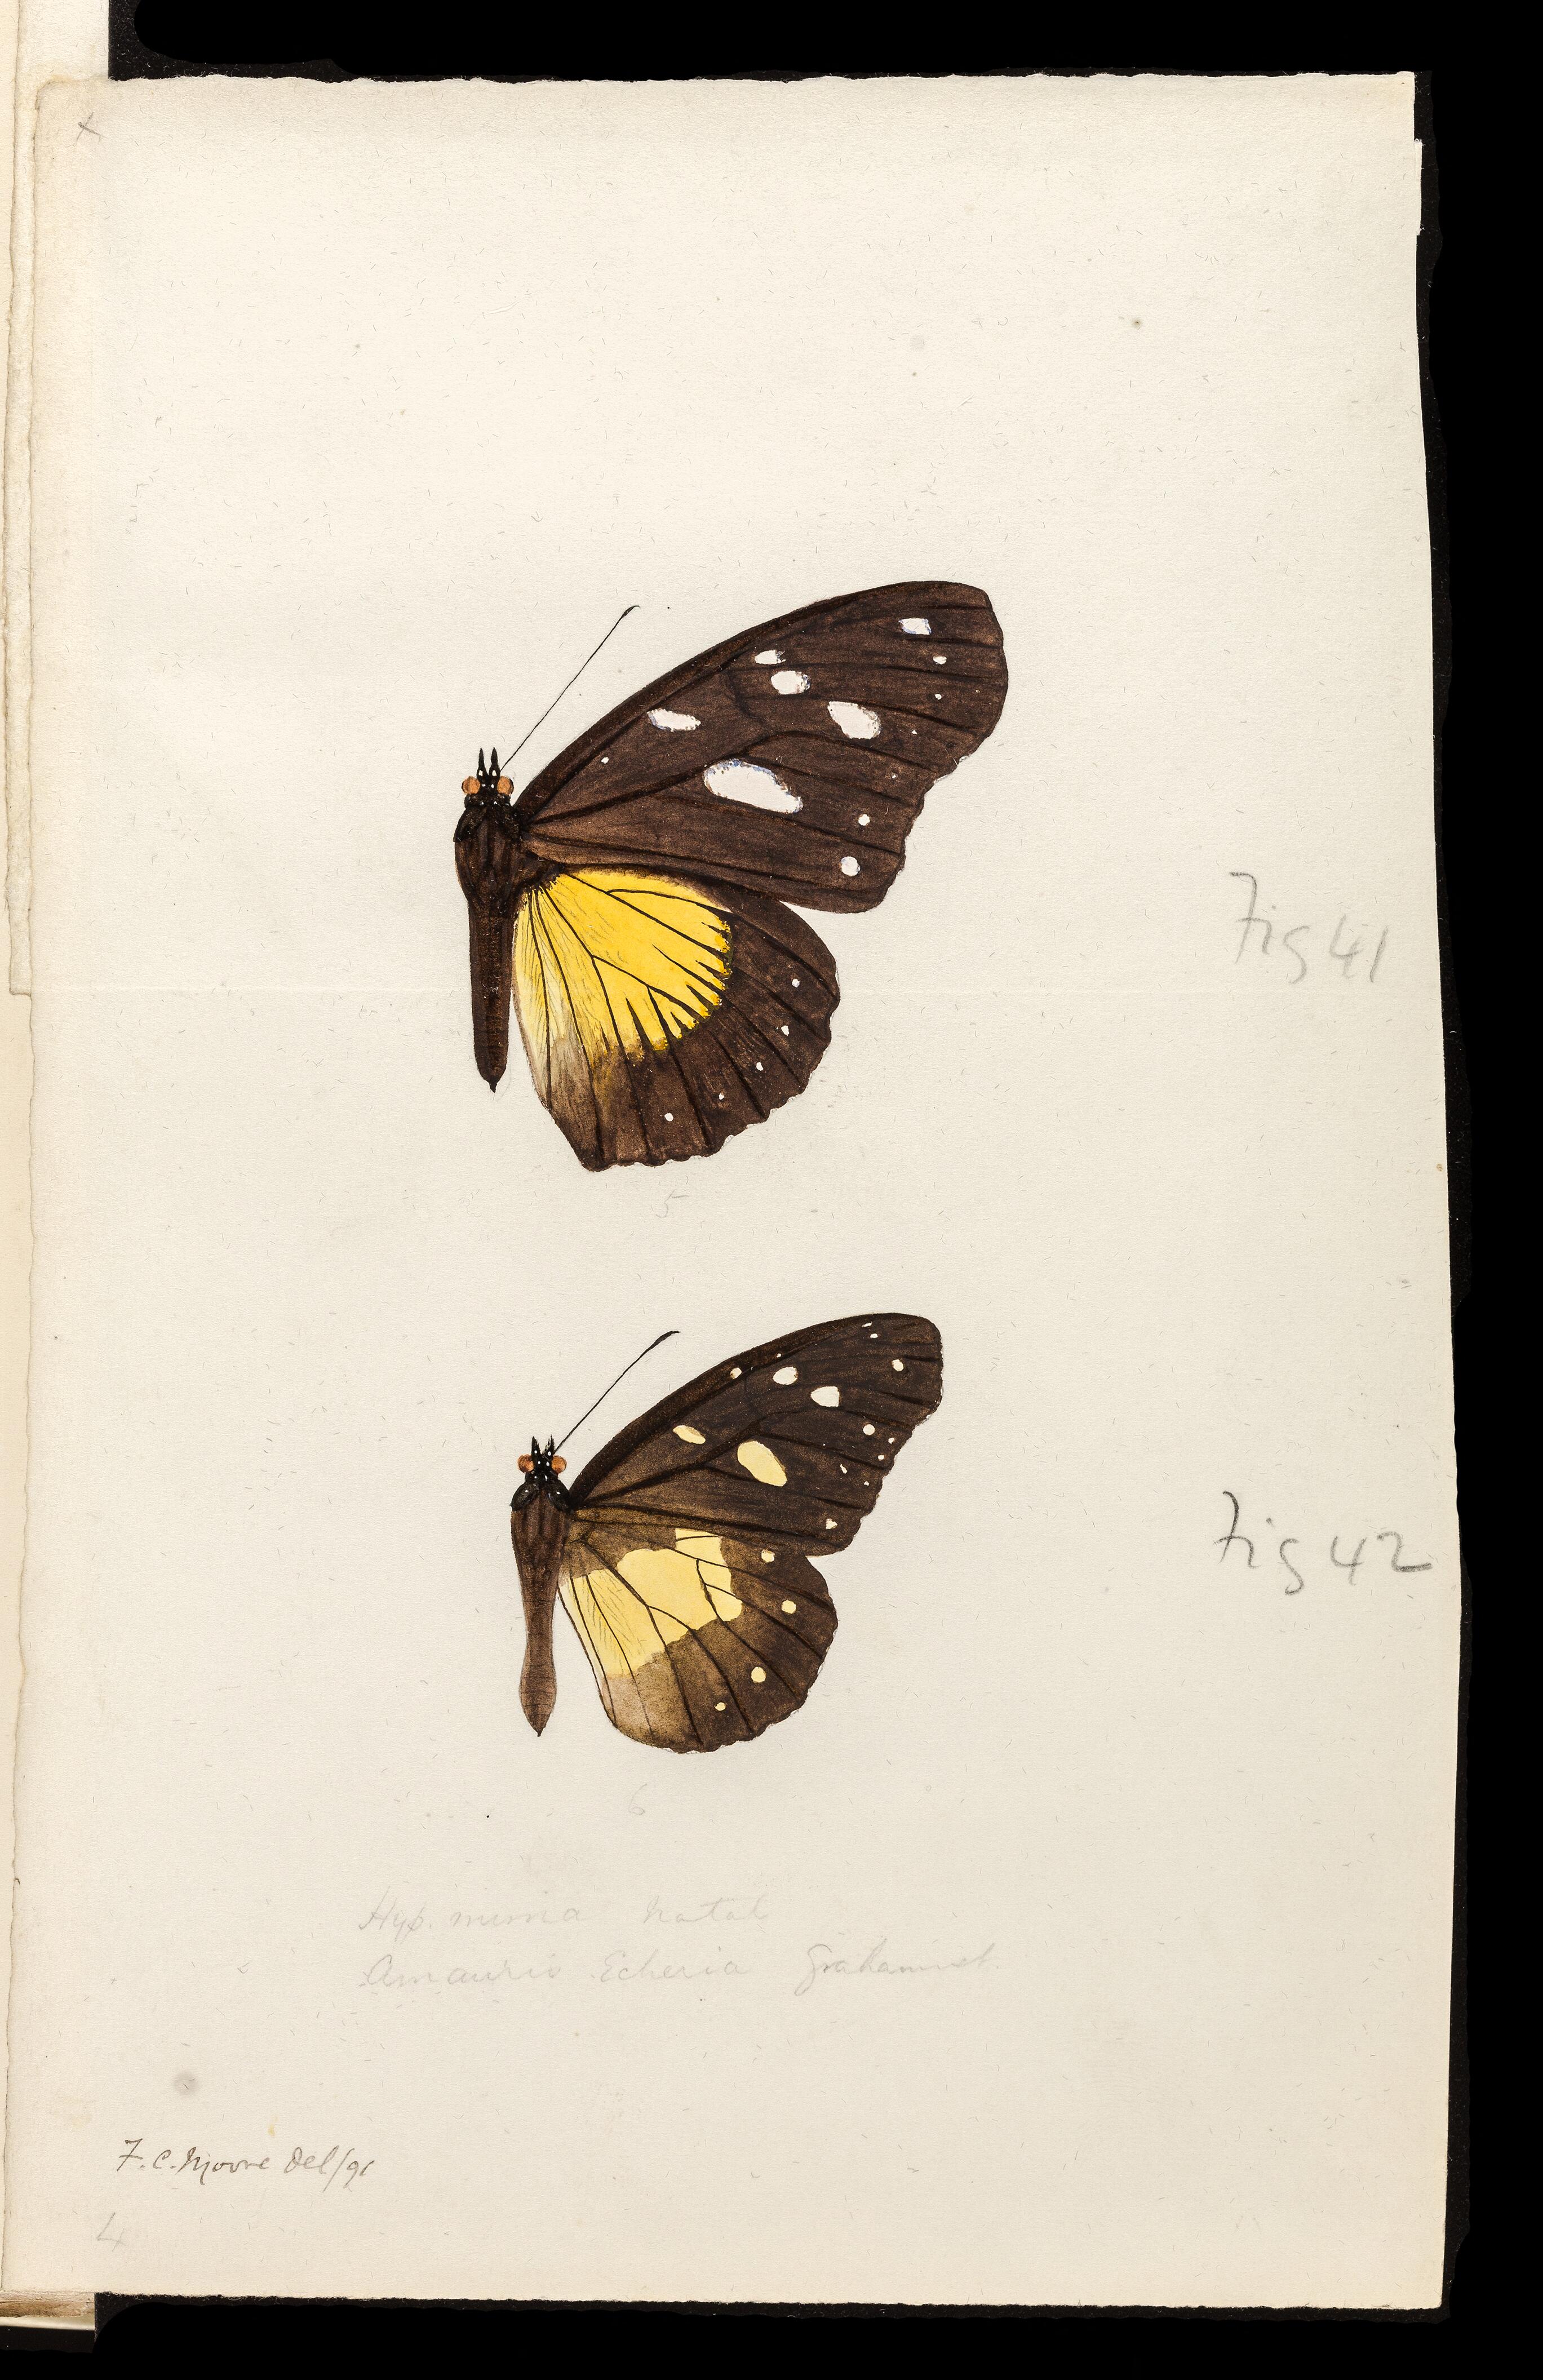 x
Fig 41
5
Fig 42
6
Hyp. mima Natal
Amauris Echeria
F. C. Moore Del/91
4